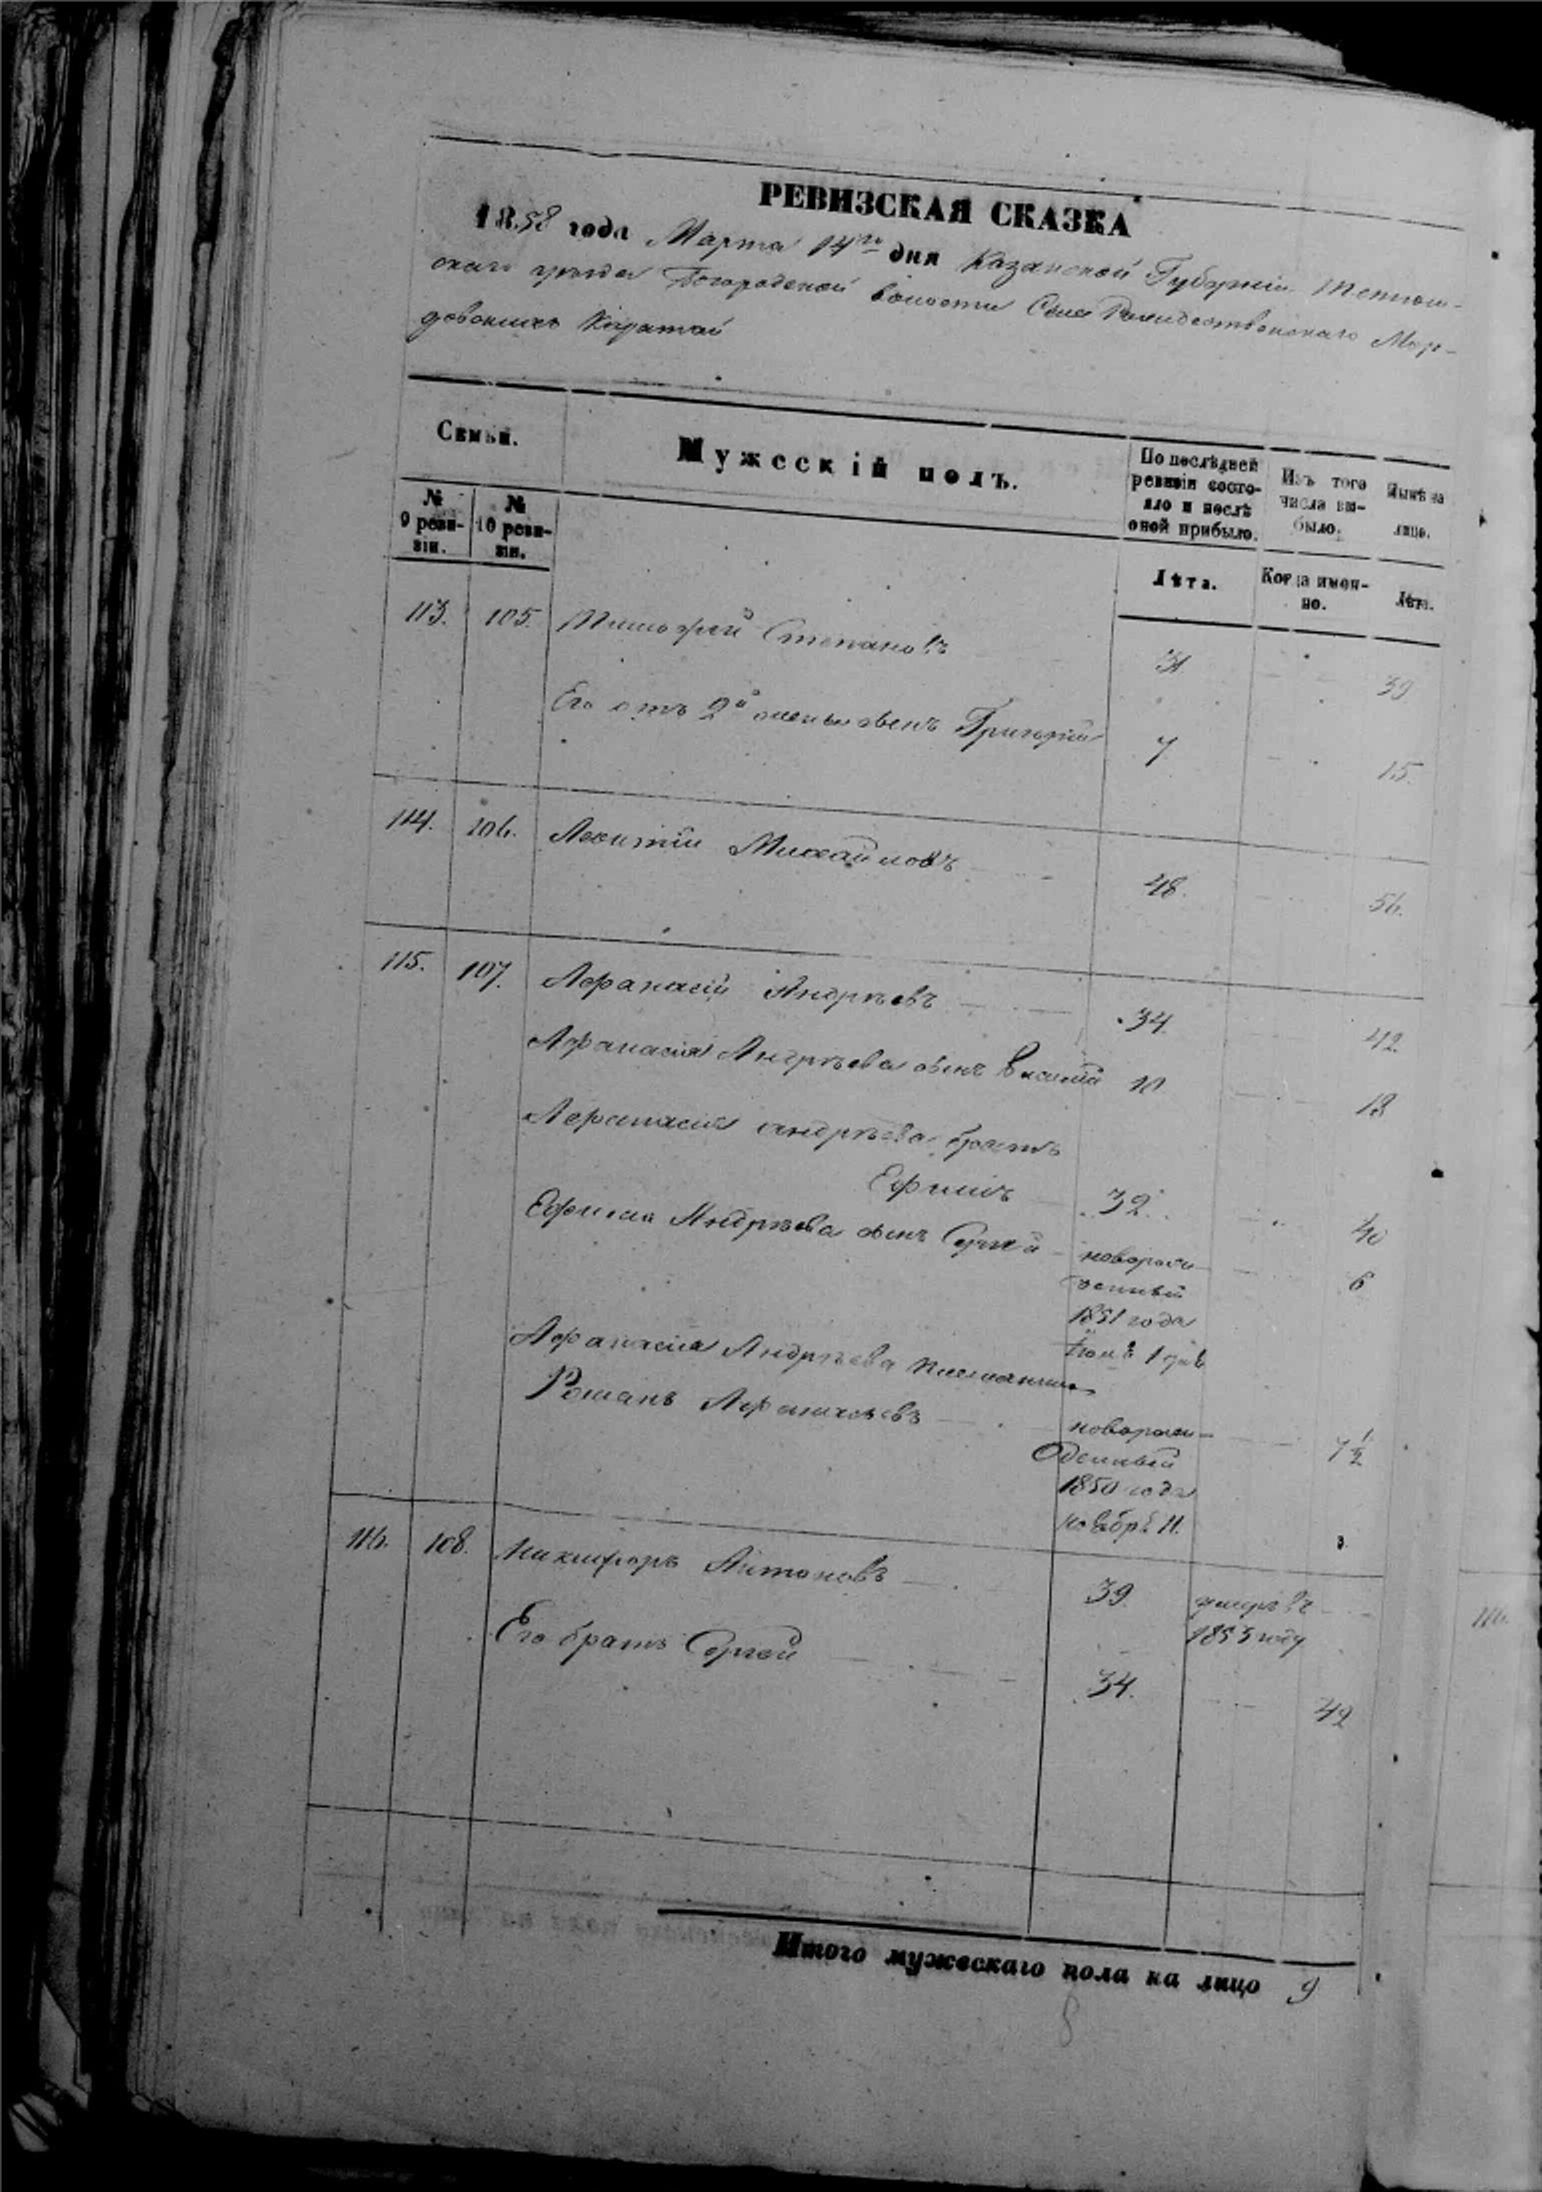 РЕВИЗСКАЯ СКАЗКА
1858 года Марта 14го дня Казанской Губерніи Тетюш-
скаго уѣзда Богородской волости Села Рождественскаго Мор-
довскихъ Каратай
Семьи.
Мужескій полъ.
По послѣдней
ревизіи состо-
яло и послѣ
оной прибыло.
Изъ того
числа вы-
было.
Нынѣ на
лицо.
№
9 реви-
зіи.
№
10 реви-
зіи.
Лѣта.
Когда имен-
но.
Лѣта.
113. 105. Тимофей Степановъ 31 39
Его отъ 2й жены сынъ Григорій 7 15.
114. 106. Леонтій Михайловъ 48. 56.
115. 107. Афанасій Андрѣевъ 34 42
Афанасія Андрѣева сынъ Василій 10 18
Афанасія Андрѣева братъ
Ефимъ 32 40
Ефима Андрѣева сынъ Сергѣй новорож- 6
денный
1851 года
Афанасія Андрѣева племянникъ
Романъ Афанасьевъ новорож- 7 1/2
денный
1850 года
ноября 11.
116. 108. Никифоръ Антоновъ 39 умеръ въ
1853 году
Его братъ Сергей 34. 42
Итого мужескаго пола на лицо 9
116.